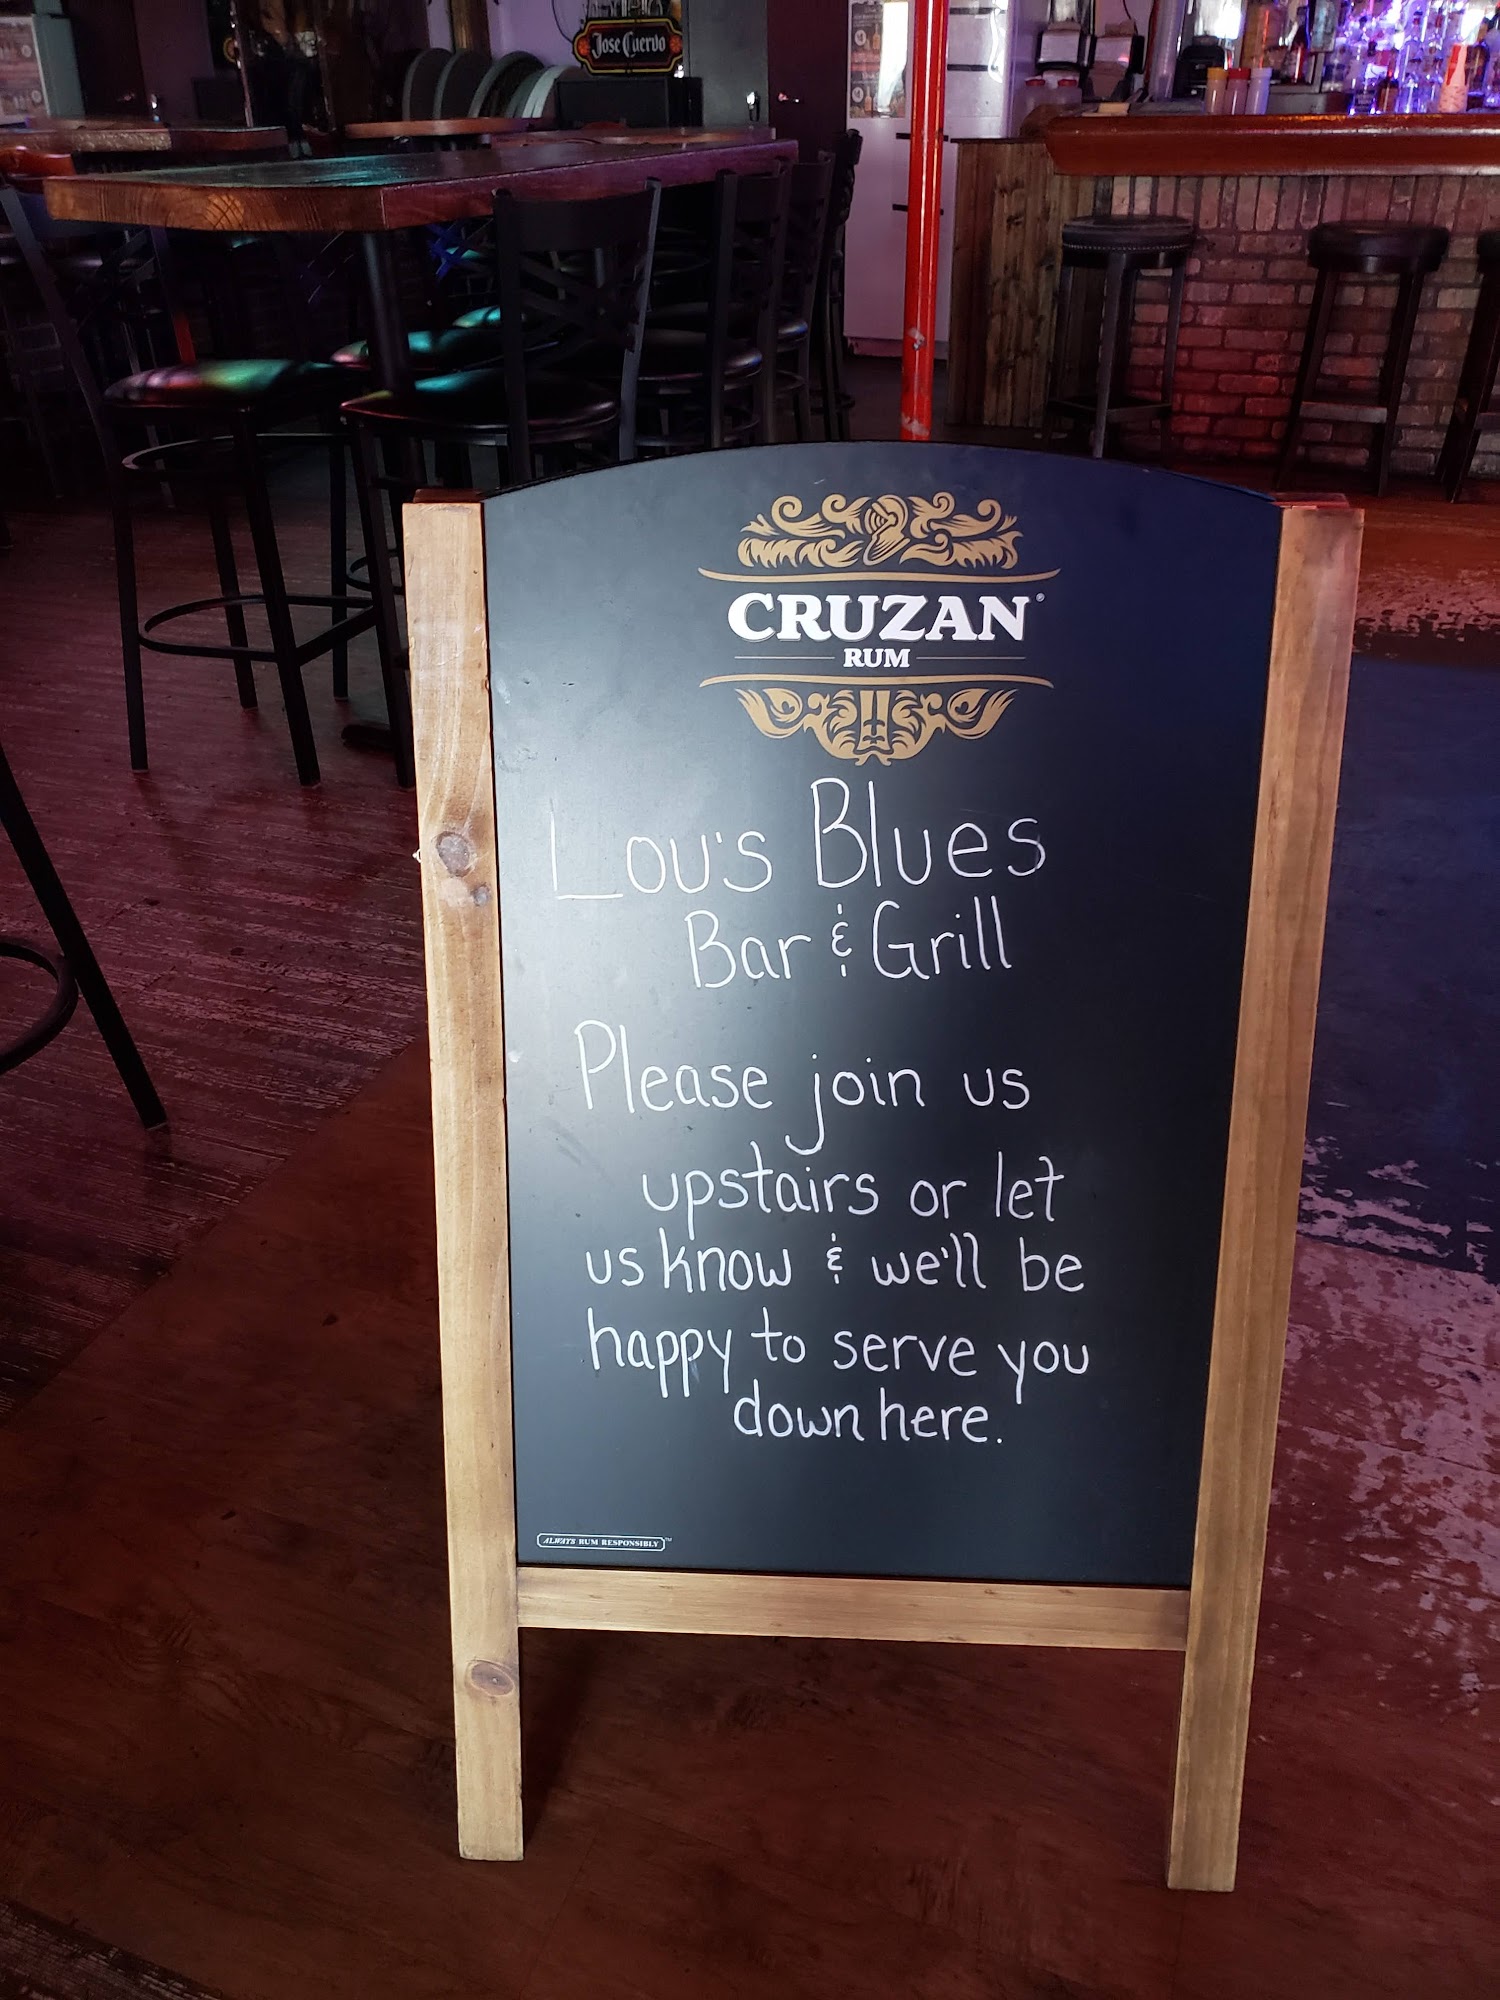 Jose Cuervo
CRUZAN®
RUM
Lou's Blues
Bar & Grill
Please join us
upstairs or let
us know & we'll be
happy to serve you
down here.
ALWAYS RUM RESPONSIBLY™